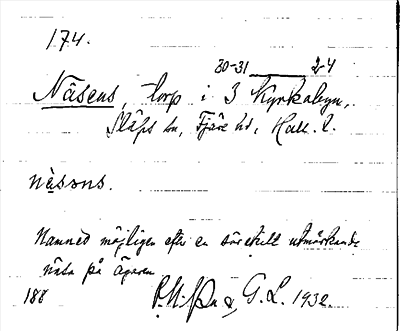 174.
30-31 2-4
Näsens, torp i 3 Kyrkobyn,
Släps sn, Fjäre hd, Hall. l.
näsɘns.
Namned möjligen efter en särskilt utmärkande
näsa på ägaren
188 & G. L. 1932.